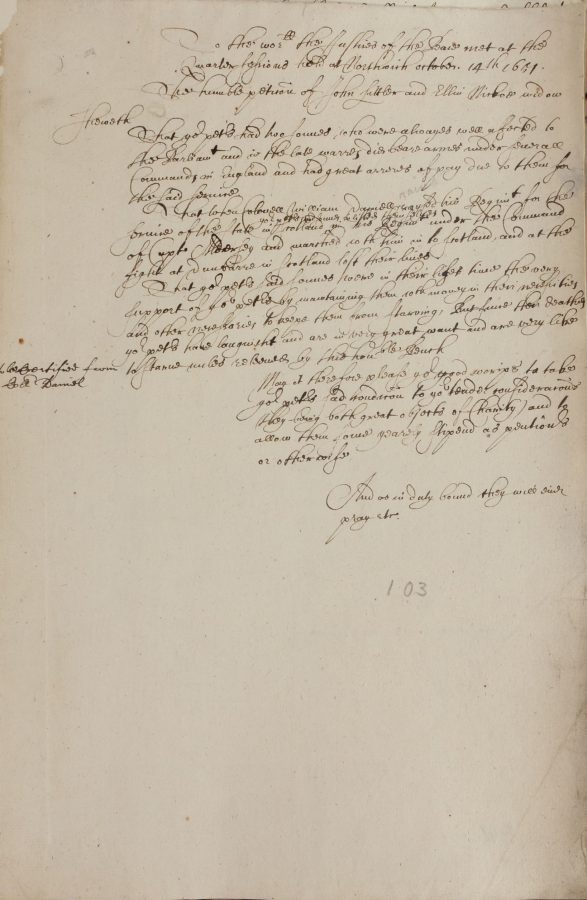 To the wor:ll the Justices of the Peace met at the
Quarter Sessions held at Northwich october. 14th 1651.
The humble petition of John Litler and Ellin Mickoe widow
Sheweth
That yor: petrs: had two sonnes, who were alwayes well affected to
the Parliamt and in the late warres did beare armes under severall
Commands in England and had great arreres of pay due to them for
the said service
That when Colonell William Daniell raysed his Regimt for the
service of the state in Scotland in his Regimt under the Command
of Capt: and marched with him in to Scotland, and at the
fight at Dunbarre in Scotland lost their lives
That yor: petrs said sonnes were in their life time the very
support of yor petrs by maintaining them with money in their necessities
and other necessaries to keepe them from starving, But since their deathes
yor petrs have languisht and are in very great want and are very like
to starve unles releeved by this honble Bench
to be Certified from
Coll Daniel
May it therefore please yor good worships to take
yor: petrs sad Condicon to yor tender considerations
they being both great objects of Charity and to
allow them some yearely stipend as pentions
or otherwise
And as in duty bound they will ever
pray etc.
103